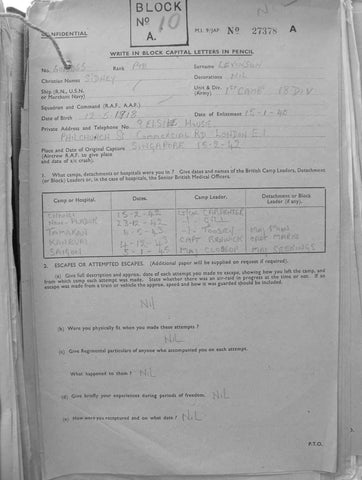 BLOCK
Nº 10
A.
CONFIDENTIAL
M.I. 9/JAP Nº 27378 A
WRITE IN BLOCK CAPITAL LETTERS IN PENCIL
No. Rank PTE Surname LEVINSON
Christian Names SIDNEY Decorations NIL
Ship (R.N., U.S.N. or Merchant Navy) Unit & Div. (Army) 1ST CAMB 18 DIV
Squadron and Command (R.A.F., A.A.F.)
Date of Birth 12-8-1918 Date of Enlistment 15-1-40
Private Address and Telephone No. 9 ELSIE HOUSE
PHILCHURCH ST COMMERCIAL RD LONDON E.1
Place and Date of Original Capture SINGAPORE 15-2-42
(Aircrew R.A.F. to give place and date of a/c crash).
1. What camps, detachments or hospitals were you in? Give dates and names of the British Camp Leaders, Detachment (or Block) Leaders or, in the case of hospitals, the Senior British Medical Officers.
Camp or Hospital. Dates. Camp Leader. Detachment or Block Leader (if any).
CHANGI 15-2-42 CARPENTER
NONG PLADUK 23-12-42 GILL
TAMARKAN 6-5-43 TOOSEY
KANBURI 4-12-43 CAPT
SAIGON 5-1-45 MAJ
2. ESCAPES OR ATTEMPTED ESCAPES. (Additional paper will be supplied on request if required).
(a) Give full description and approx. date of each attempt you made to escape, showing how you left the camp, and from which camp each attempt was made. State whether there was an air-raid in progress at the time or not. If so escape was made from a train or vehicle the approx. speed and how it was guarded should be included.
NIL
(b) Were you physically fit when you made these attempts?
NIL
(c) Give Regimental particulars of anyone who accompanied you on each attempt.
What happened to them? NIL
(d) Give briefly your experiences during periods of freedom. NIL
(e) How were you recaptured and on what date? NIL
P.T.O.